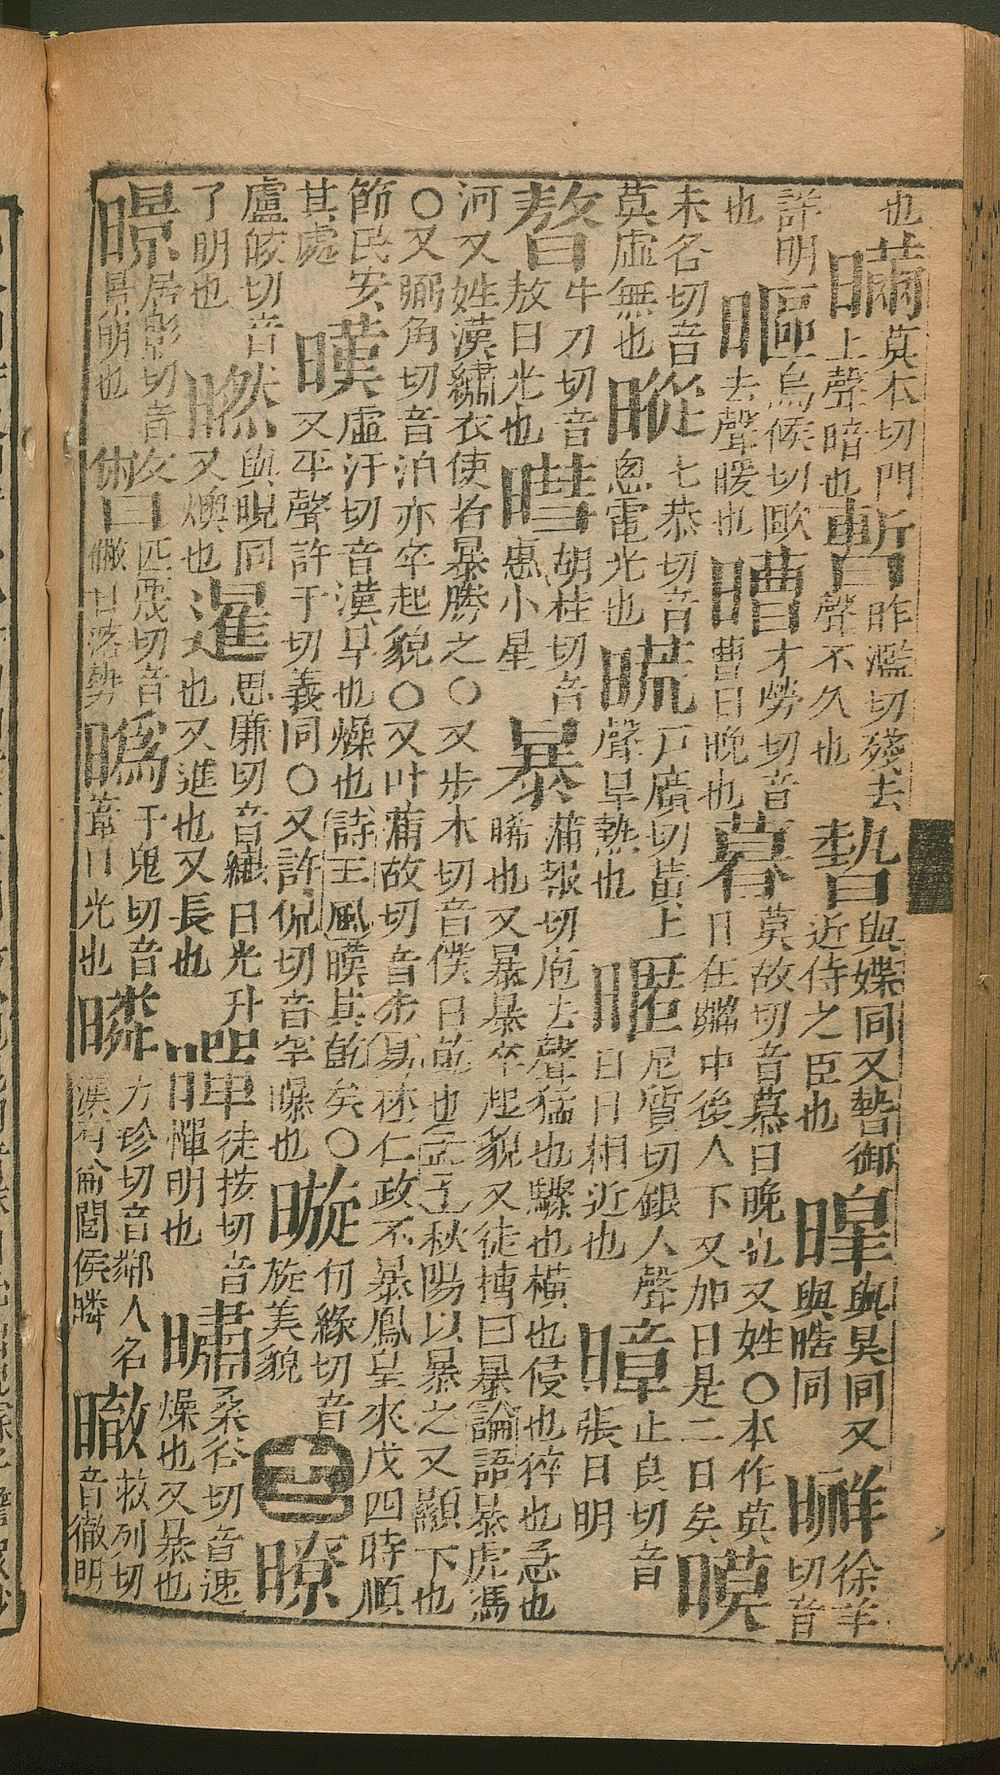 也暪莫本切門上聲暗也暫昨濫切殘去聲不久也暬與媟同又暬御近侍之臣也暤與昊同又與晧同徐羊切音
詳明也烏候切歐去聲暖也才勞切音曹日晚也暮莫故切音慕日晚也又姓〇本作莫日在茻中後人下又加日是二日矣暯
末各切音莫虛無也暰七恭切音悤電光也戶廣切黃上聲旱熱也暱尼質切銀入聲日日相近也暲止良切音張日明
牛刀切音敖日光也暳胡桂切音惠小星暴蒲報切庖去聲猛也驟也橫也侵也猝也急也晞也又暴暴卒起貌又徒摶曰暴論語暴虎馮
河又姓漢繡衣使者暴勝之〇又步木切音僕日乾也孟子秋陽以暴之又顯下也〇又弼角切音泊亦卒起貌〇又叶蒲故切音布易林仁政不暴鳳皇來戊四時順
節民安其處暵虛汗切音漢旱也燥也詩王風暵其乾矣〇又平聲許于切義同〇又許侃切音罕曝也暶旬緣切音旋美貌十二暸
盧皎切音了明也㬗與晛同又煗也暹思廉切音纖日光升進也又進也又長也暺徒按切音憚明也㬘桑谷切音速燥也又暴也
暻居影切音景明也匹蔑切音撇日落勢㬙于鬼切音葦日光也暽力珍切音鄰人名漢有侖閭侯暽㬚敕列切音徹明